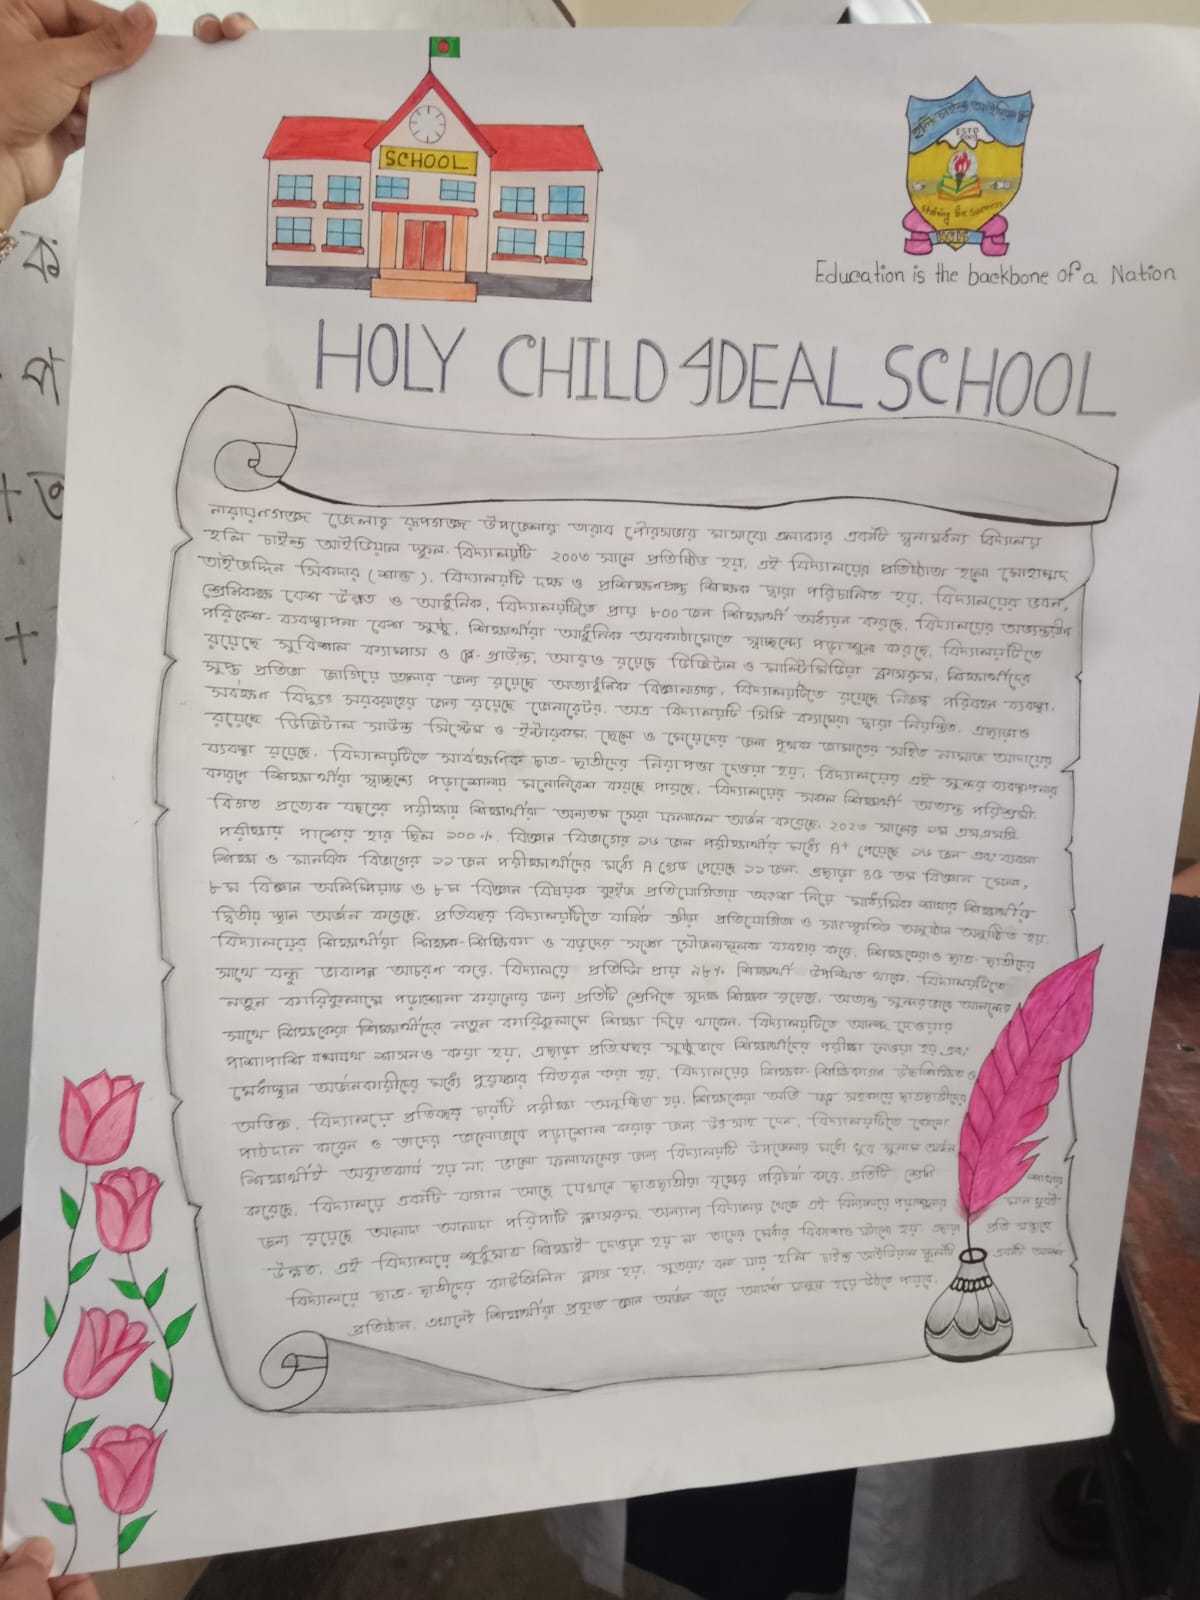 SCHOOL
হলি চাইল্ড আইডিয়াল
ESTD
2003
Striving for Success
Education is the backbone of a Nation
HOLY CHILD IDEAL SCHOOL
নারায়ণগঞ্জ জেলার রূপগঞ্জ উপজেলার তারাব পৌরসভার মাসাবো এলাকার একটি স্বনামধন্য বিদ্যালয়
হলি চাইল্ড আইডিয়াল স্কুল। বিদ্যালয়টি ২০০৩ সালে প্রতিষ্ঠিত হয়। এই বিদ্যালয়ের প্রতিষ্ঠাতা হলো মোহাম্মদ
তাইজদ্দিন সিকদার (শান্ত)। বিদ্যালয়টি দক্ষ ও প্রশিক্ষণপ্রাপ্ত শিক্ষক দ্বারা পরিচালিত হয়। বিদ্যালয়ের ভবন,
শ্রেণিকক্ষ বেশ উন্নত ও আধুনিক। বিদ্যালয়টিতে প্রায় ৮০০ জন শিক্ষার্থী অধ্যয়ন করছে। বিদ্যালয়ের অভ্যন্তরীণ
পরিবেশ-ব্যবস্থাপনা বেশ সুষ্ঠু। শিক্ষার্থীরা আধুনিক অবকাঠামোতে স্বাচ্ছন্দ্যে পড়াশুনা করছে। বিদ্যালয়টিতে
রয়েছে সুবিশাল ক্যাম্পাস ও প্লে-গ্রাউন্ড। আরও রয়েছে ডিজিটাল ও মাল্টিমিডিয়া ক্লাসরুম। শিক্ষার্থীদের
সুপ্ত প্রতিভা জাগিয়ে তোলার জন্য রয়েছে অত্যাধুনিক বিজ্ঞানাগার। বিদ্যালয়টিতে রয়েছে নিজস্ব পরিবহন ব্যবস্থা।
সর্বক্ষণ বিদ্যুৎ সরবরাহের জন্য রয়েছে জেনারেটর। অত্র বিদ্যালয়টি সিসি ক্যামেরা দ্বারা নিয়ন্ত্রিত। এছাড়াও
রয়েছে ডিজিটাল সাউন্ড সিস্টেম ও ইন্টারকম। ছেলে ও মেয়েদের জন্য পৃথক জামাতের সহিত নামাজ আদায়ের
ব্যবস্থা রয়েছে। বিদ্যালয়টিতে সার্বক্ষণিক ছাত্র-ছাত্রীদের নিরাপত্তা দেওয়া হয়। বিদ্যালয়ের এই সুন্দর ব্যবস্থাপনার
কারণে শিক্ষার্থীরা স্বাচ্ছন্দ্যে পড়াশোনায় মনোনিবেশ করতে পারছে। বিদ্যালয়ের সকল শিক্ষার্থী অত্যন্ত পরিশ্রমী।
বিগত প্রত্যেক বছরের পরীক্ষায় শিক্ষার্থীরা অন্যতম সেরা ফলাফল অর্জন করেছে। ২০২৩ সালের ১ম এস.এস.সি
পরীক্ষায় পাশের হার ছিল ১০০%। বিজ্ঞান বিভাগের ১৬ জন পরীক্ষার্থীর মধ্যে A+ পেয়েছে ১৬ জন এবং ব্যবসা
শিক্ষা ও মানবিক বিভাগের ১১ জন পরীক্ষার্থীদের মধ্যে A গ্রেড পেয়েছে ১১ জন। এছাড়া ৪৫ তম বিজ্ঞান মেলা,
৮ম বিজ্ঞান অলিম্পিয়াড ও ৮ম বিজ্ঞান বিষয়ক কুইজ প্রতিযোগিতায় অংশ নিয়ে মাধ্যমিক শাখার শিক্ষার্থীরা
দ্বিতীয় স্থান অর্জন করেছে। প্রতিবছর বিদ্যালয়টিতে বার্ষিক ক্রীড়া প্রতিযোগিতা ও সাংস্কৃতিক অনুষ্ঠান অনুষ্ঠিত হয়।
বিদ্যালয়ের শিক্ষার্থীরা শিক্ষক-শিক্ষিকা ও বড়দের সঙ্গে সৌজন্যমূলক ব্যবহার করে। শিক্ষকেরাও ছাত্র-ছাত্রীদের
সাথে বন্ধু ভাবাপন্ন আচরণ করে। বিদ্যালয়ে প্রতিদিন প্রায় ৯৮% শিক্ষার্থী উপস্থিত থাকে। বিদ্যালয়টিতে
নতুন কারিকুলামে পড়াশোনা করানোর জন্য প্রতিটি শ্রেণিতে সুদক্ষ শিক্ষক রয়েছে। অত্যন্ত সুন্দরভাবে আনন্দের
সাথে শিক্ষকেরা শিক্ষার্থীদের নতুন কারিকুলামে শিক্ষা দিয়ে থাকেন। বিদ্যালয়টিতে আনন্দ দেওয়ার
পাশাপাশি যথাযথ শাসনও করা হয়। এছাড়া প্রতিবছর সুষ্ঠুভাবে শিক্ষার্থীদের পরীক্ষা নেওয়া হয় এবং
মেধাস্থান অর্জনকারীদের মধ্যে পুরস্কার বিতরন করা হয়। বিদ্যালয়ের শিক্ষক-শিক্ষিকাগণ উচ্চশিক্ষিত ও
অভিজ্ঞ। বিদ্যালয়ে প্রতিবছর চারটি পরীক্ষা অনুষ্ঠিত হয়। শিক্ষকেরা অতি যত্ন সহকারে ছাত্রছাত্রীদের
পাঠদান করেন ও তাদের ভালোভাবে পড়াশোনা করার জন্য উৎসাহ দেন। বিদ্যালয়টিতে কোনো
শিক্ষার্থীই অকৃতকার্য হয় না। ভালো ফলাফলের জন্য বিদ্যালয়টি উপজেলার মধ্যে খুব সুনাম অর্জন
করেছে। বিদ্যালয়ে একটি বাগান আছে যেখানে ছাত্রছাত্রীরা বৃক্ষের পরিচর্যা করে। প্রতিটি শ্রেণি শাখার
জন্য রয়েছে আলাদা আলাদা পরিপাটি ক্লাসরুম। অন্যান্য বিদ্যালয় থেকে এই বিদ্যালয়ে পড়াশুনার মান খুবই
উন্নত। এই বিদ্যালয়ে শুধুমাত্র শিক্ষাই দেওয়া হয় না তাদের মেধার বিকাশও ঘটানো হয়। এছাড়া প্রতি সপ্তাহে
বিদ্যালয়ে ছাত্র-ছাত্রীদের কাউন্সিলিং ক্লাস হয়। সুতরাং বলা যায় হলি চাইল্ড আইডিয়াল স্কুলটি একটি আদর্শ
প্রতিষ্ঠান। এখানেই শিক্ষার্থীরা প্রকৃত জ্ঞান অর্জন করে আদর্শ মানুষ হয়ে উঠতে পারবে।
ক
প
+
+